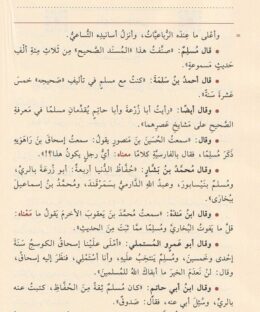 وأعلى ما عِندَه الرُّباعيَّات، وأنزلُ أسانيدِه التُّساعيُّ.
• قال مُسلِمٌ: «صنَّفتُ هذا «المُسنَد الصَّحيح» مِن ثلاثِ مئةِ ألْفِ
حديثٍ مسموعةٍ».
• قال أحمدُ بنُ سَلَمَةَ: «كنتُ مع مسلمٍ في تأليفِ «صَحيحِه» خمسَ
عَشْرةَ سَنةً».
• وقال أيضًا: «رأيتُ أبا زُرعةَ وأبا حاتمٍ يُقدِّمانِ مسلمًا في مَعرفةِ
الصَّحيحِ على مَشايخِ عَصرِهما».
• وقال: سمعتُ الحُسَينَ بنَ مَنصورٍ يقولُ: سمعتُ إسحاقَ بنَ رَاهَوَيهِ
ذَكَرَ مُسلِمًا، فقال بالفارسيَّةِ كلامًا معناه: أيُّ رجلٍ يكونُ هذا؟!».
• وقال مُحمَّدُ بنُ بَشَّارٍ: «حُفَّاظُ الدُّنيا أربعةٌ: أبو زُرعةَ بالرَّيِّ،
ومُسلِمٌ بنَيسابورَ، وعبدُ اللهِ الدَّارميُّ بسَمَرْقَندَ، ومُحمَّدُ بنُ إسماعيلَ
ببُخارَى».
• وقال ابنُ مَنْدَهْ: «سمعتُ مُحمَّدَ بنَ يَعقوبَ الأخرمَ يقولُ ما مَعْناه:
قلَّ ما يَفوتُ البُخاريَّ ومُسلِمًا ممَّا ثَبَتَ مِنَ الحديثِ».
• وقال أبو عَمرٍو المُستملي: «أَمْلَى علَينا إسحاقُ الكَوسَجُ سَنةَ
إحدى وخَمسينَ، ومُسلِمٌ يَنتخِبُ عليه، وأنا أَستَملي، فنَظَر إليه إسحاقُ،
وقال: لنْ نَعدَمَ الخيرَ ما أبقاكَ اللهُ للمُسلِمينَ».
• وقال ابنُ أبي حاتمٍ: «كان مُسلِمٌ ثِقةً مِنَ الحُفَّاظِ، كتبتُ عنه
بالرَّيِّ، وسُئِلَ أبي عنه، فقال: صَدوقٌ».